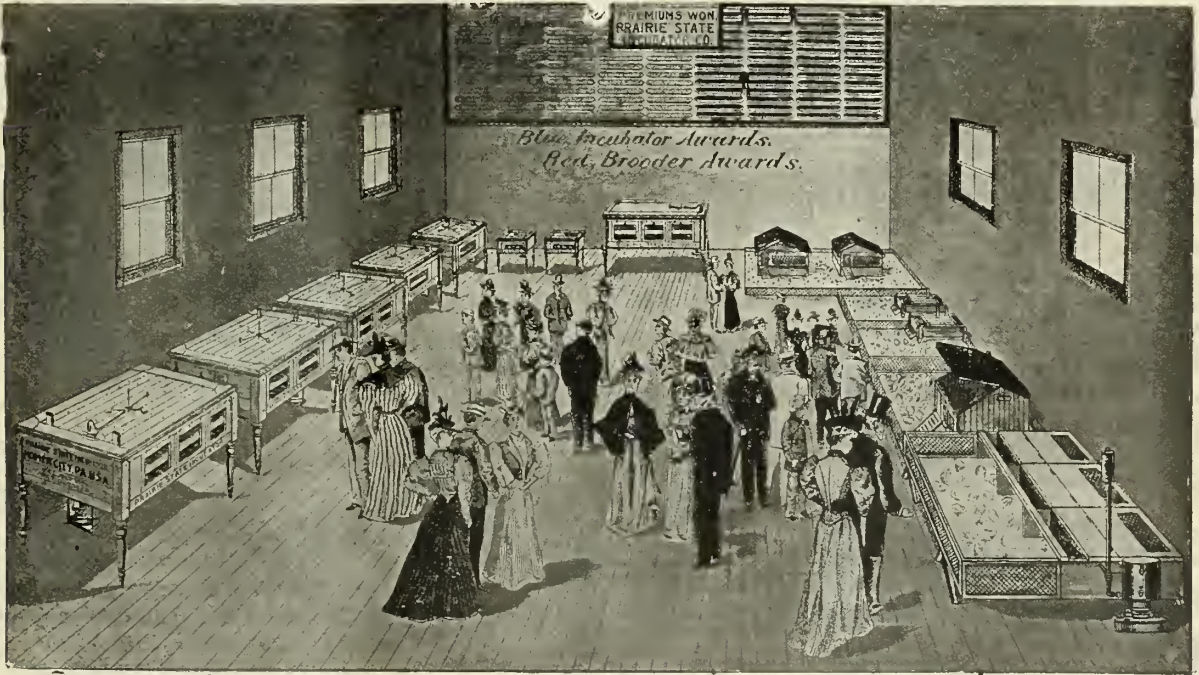 PREMIUMS WON
PRAIRIE STATE
INCUBATOR CO.
Blue, Incubator Awards.
Red, Brooder Awards.
HOMER CITY, PA. U.S.A.
PRAIRIE STATE